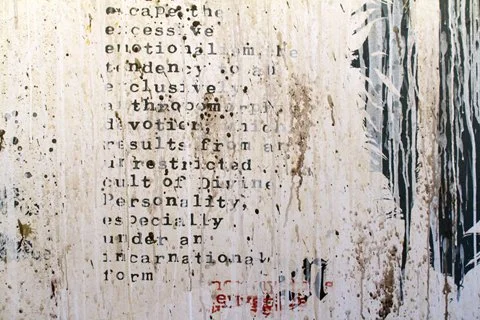 escape the
excessive
emotionalism, the
tendency to an
exclusively
anthropomorphic
devotion, which
results from an
unrestricted
cult of Divine
Personality,
especially
under an
incarnational
form